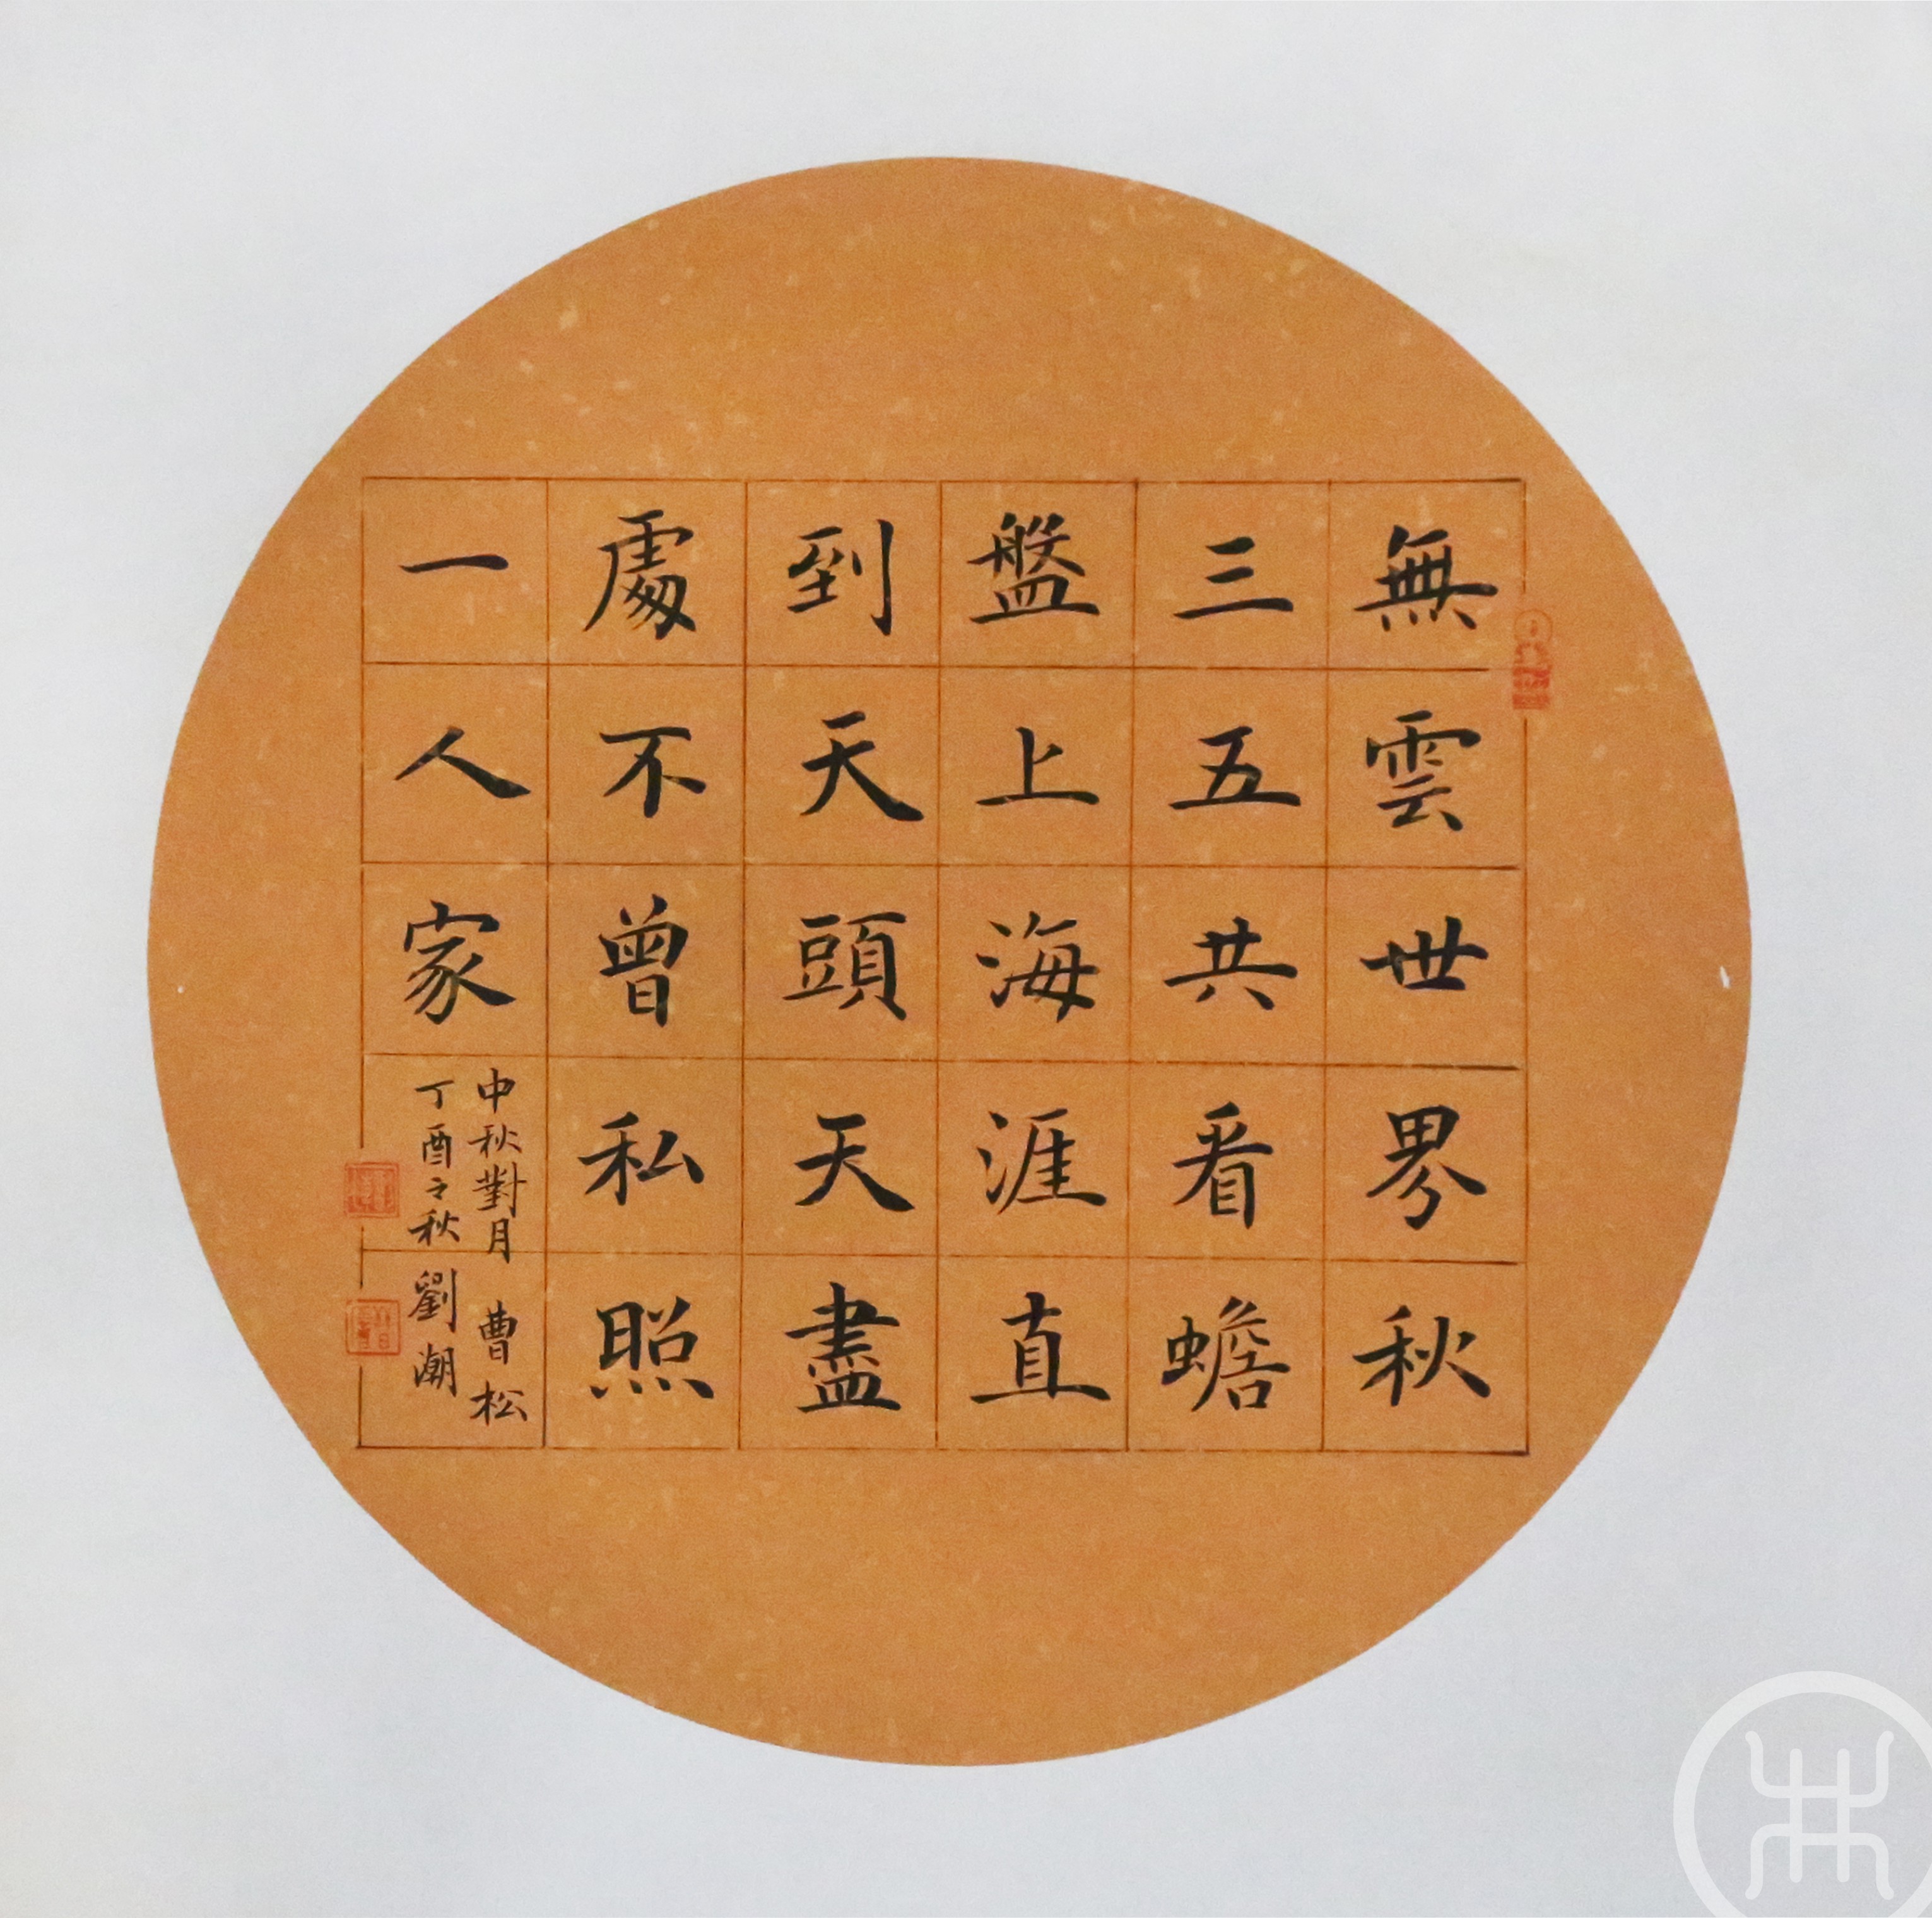 無雲世界秋
三五共看蟾
盤上海涯直
到天頭天盡
處不曾私照
一人家
中秋對月 曹松
丁酉之秋 劉潮